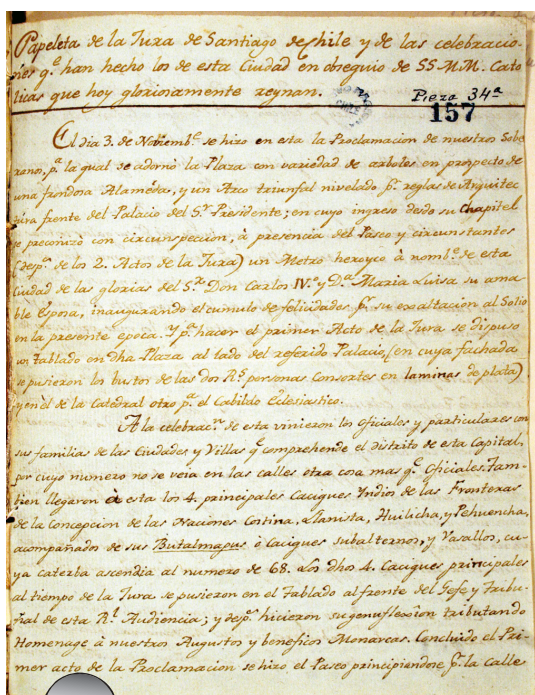 Papeleta de la Jura de Santiago de Chile y de las celebracio-
nes q.e han hecho los de esta Ciudad en obsequio de SS.M.M. Cato
licas que hoy gloriosamente reynan.
Pieza 34a
157
CHILE
El dia 3. de Noviemb.e se hizo en esta la Proclamacion de nuestros Sobe
ranos, p.a la qual se adornó la Plaza con variedad de arboles en prospecto de
una frondosa Alameda, y un Arco triunfal nivelado p.r reglas de Arquitec
tura frente del Palacio del S.r Presidente; en cuyo ingreso desde su Chapitel
se preconizó con circunspeccion, à presencia del Paseo y circunstantes
(desp.s de los 2. Actos de la Jura) un Metro heroyco à nomb.e de esta
Ciudad de las glorias del S.r Don Carlos IV.o y D.a Maria Luisa su ama
ble Esposa, inaugurando el cumulo de felicidades p.r su exaltacion al Solio
en la presente epoca. Y p.a hacer el primer Acto de la Jura se dispuso
un Tablado en dha Plaza al lado del referido Palacio, (en cuya fachada
se pusieron los bustos de las dos R.s personas Consortes en laminas de plata)
y en el de la Catedral otro p.a el Cabildo Eclesiastico.
A la celebrac.n de esta vinieron los oficiales y particulares con
sus familias de las Ciudades y Villas q.e comprehende el distrito de esta Capital,
por cuyo numero no se veia en las calles otra cosa mas q.e oficiales. Tam-
bien llegaron à esta los 4. principales Caciques Indios de las Fronteras
de la Concepcion de las Naciones Costina, Llanista, Huilicha, y Pehuencha,
acompañados de sus Butalmapus ò Caciques subalternos, y Vasallos, cu-
ya caterba ascendia al numero de 68. Los dho 4. Caciques principales
al tiempo de la Jura se pusieron en el Tablado al frente del Gefe y Tribu-
nal de esta R.l Audiencia; y desp.s hicieron su genuflexion tributando
Homenage à nuestros Augustos y beneficos Monarcas. Concluido el Pri-
mer acto de la Proclamacion se hizo el Paseo principiandose p.r la calle